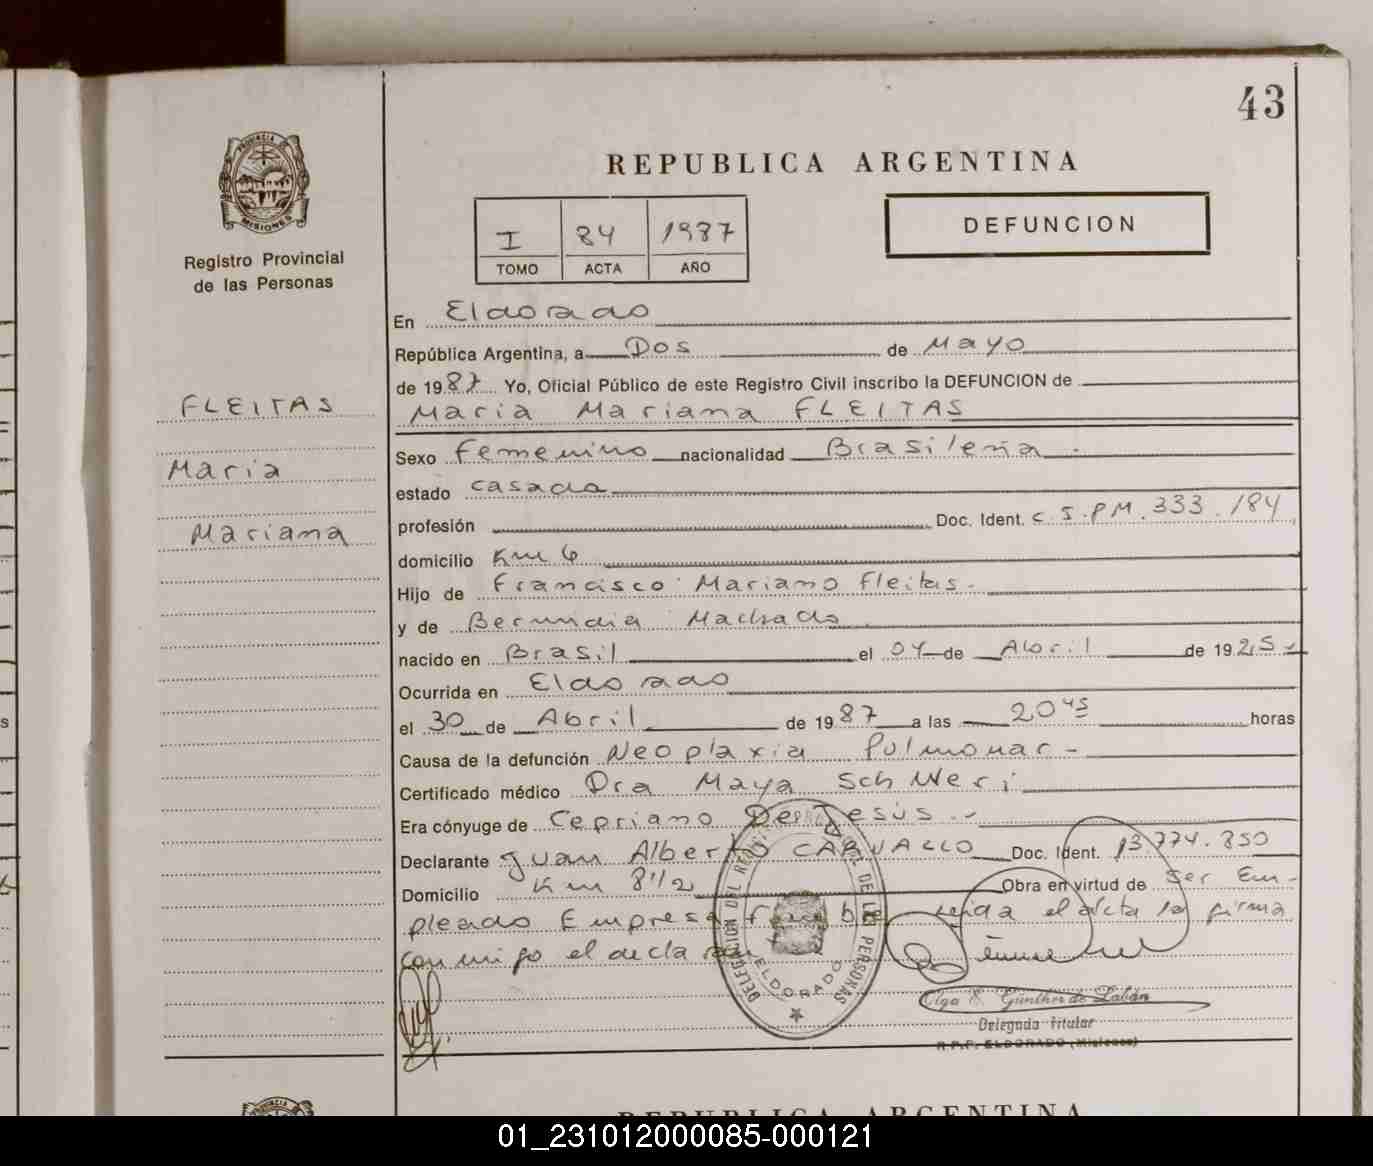 43
PROVINCIA DE
MISIONES
REPUBLICA ARGENTINA
I 84 1987
TOMO ACTA AÑO
DEFUNCION
Registro Provincial
de las Personas
FLEITAS
Maria
Mariana
En Eldorado
República Argentina, a Dos de Mayo
de 1987 Yo, Oficial Público de este Registro Civil inscribo la DEFUNCION de
Maria Mariana FLEITAS
Sexo Femenino nacionalidad Brasileña
estado casada
profesión Doc. Ident. C.I.PM.333./84
domicilio Km 6
Hijo de Francisco Mariano Fleitas.
y de Machado
nacido en Brasil el 04 de Abril de 1925
Ocurrida en Eldorado
el 30 de Abril de 1987 a las 20 45 horas
Causa de la defunción Neoplaxia Pulmonar -
Certificado médico Dra Maya Schweri
Era cónyuge de Cepriano De Jesús.-
Declarante Juan Alberto CARVALLO Doc. Ident. 13.774.850
Domicilio Km 8 1/2 Obra en virtud de ser Em-
pleado Empresa Funebre leida el acta la firma
conmigo el declarante
DELEGACION DEL REGISTRO PROVINCIAL DE LAS PERSONAS
ELDORADO
Olga E. Günther de Labán
Delegada Titular
R.P.P. ELDORADO (Misiones)
REPUBLICA ARGENTINA
01_231012000085-000121